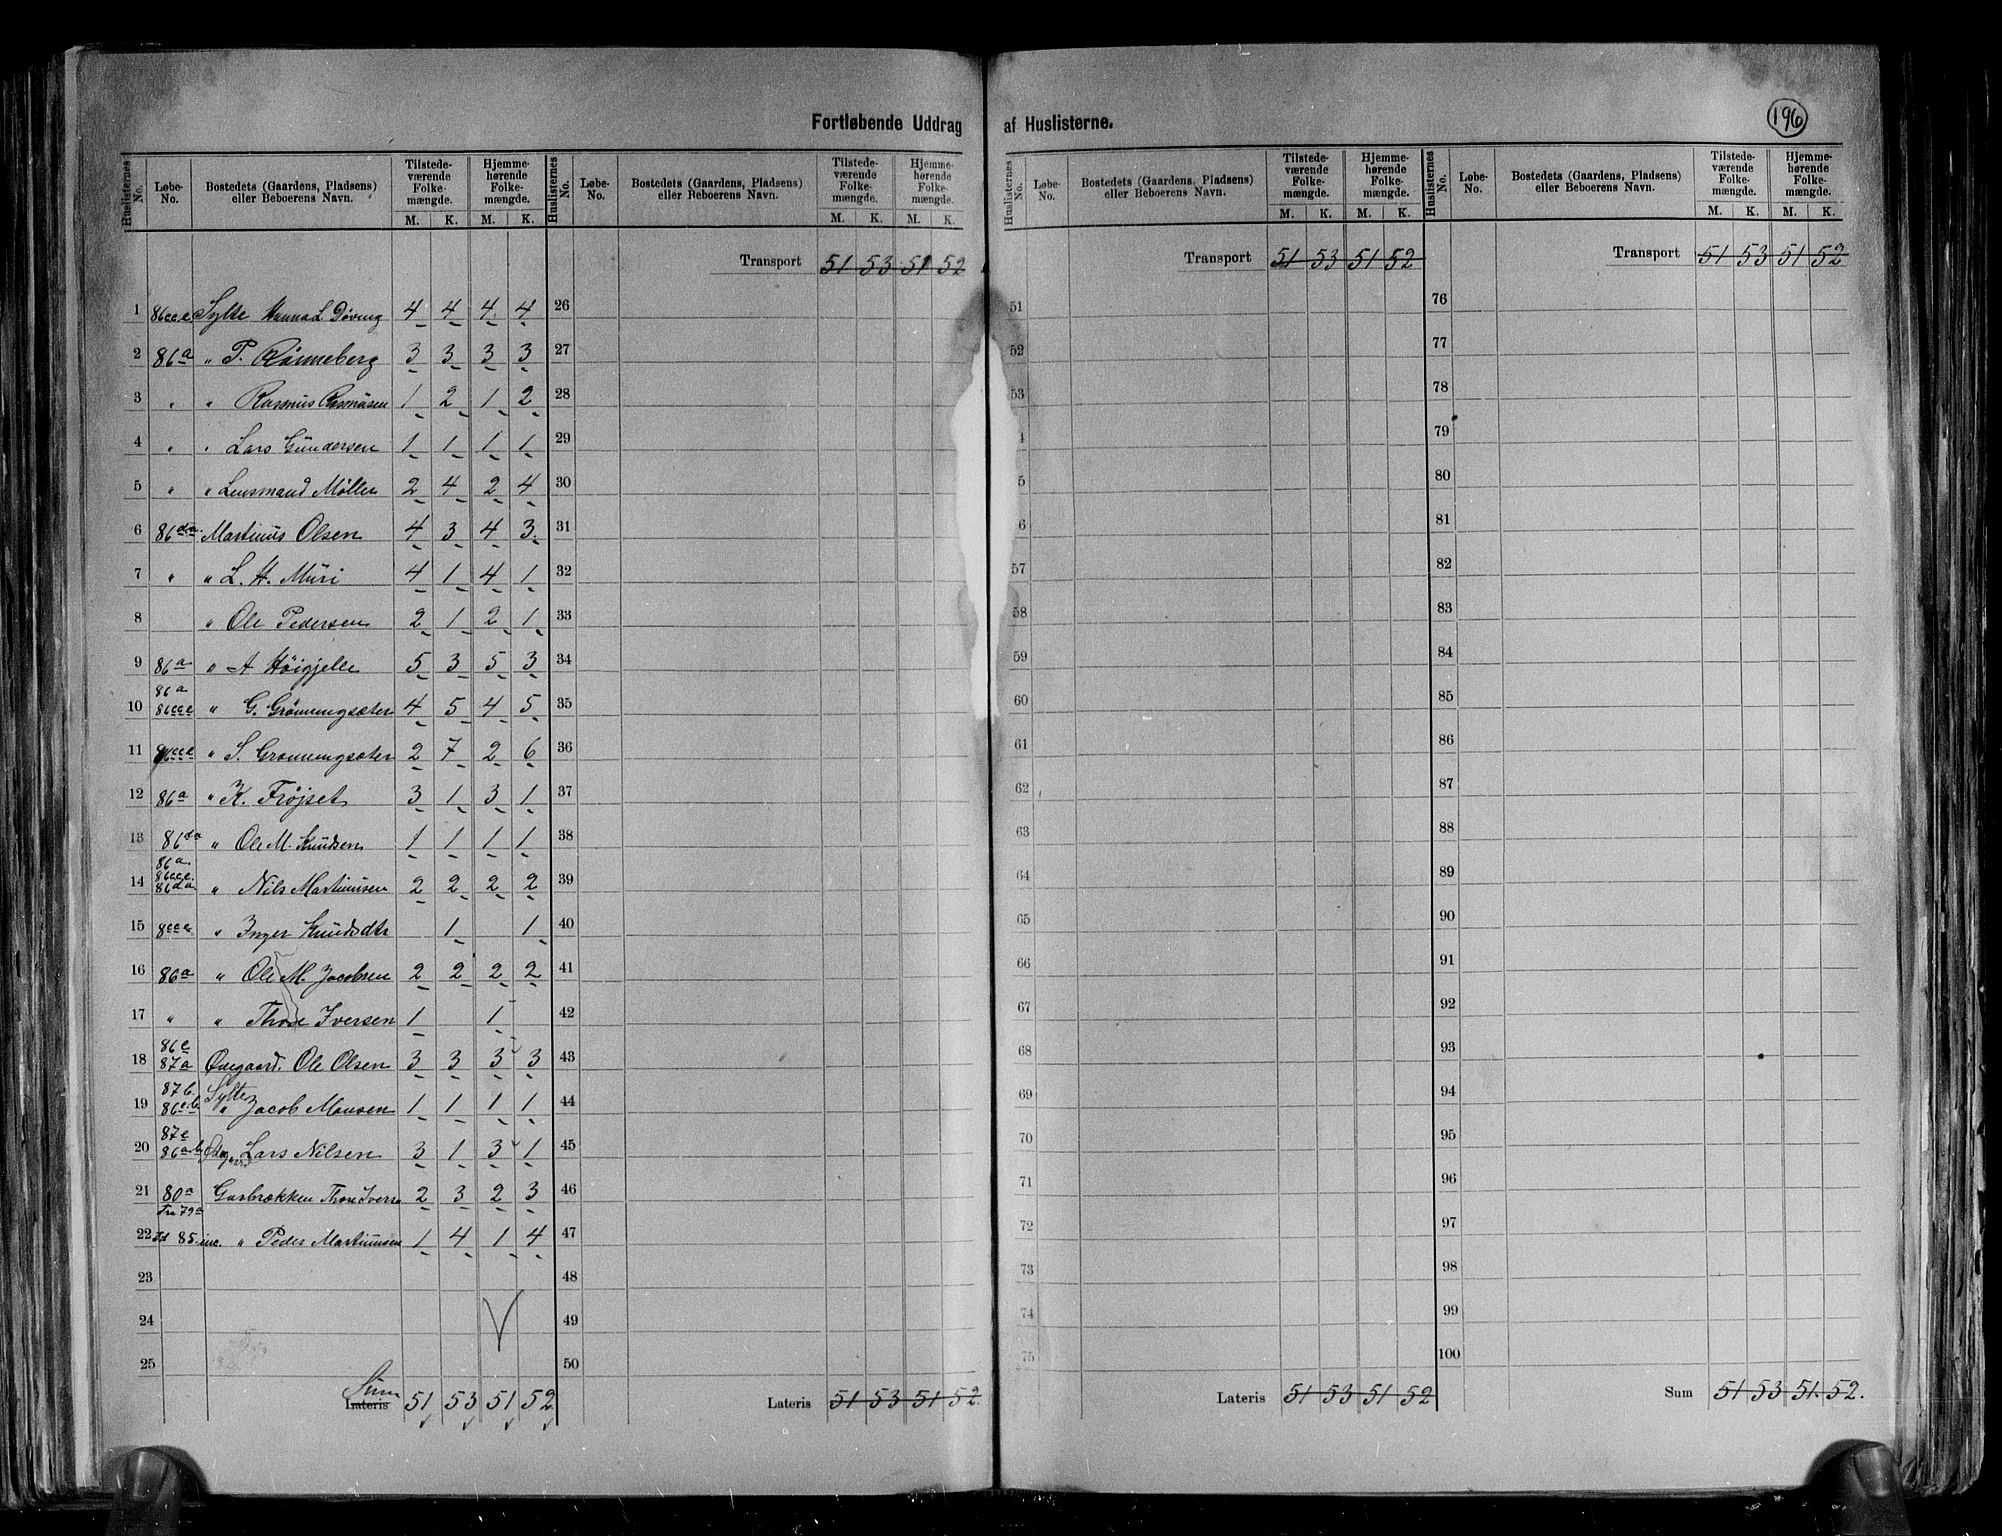 Fortløbende Uddrag af Huslisterne.
196
Huslisternes No. Løbe-No. Bostedets (Gaardens, Pladsens) eller Beboerens Navn. Tilstedeværende Folkemængde. M. K. Hjemmehørende Folkemængde. M. K.
Huslisternes No. Løbe-No. Bostedets (Gaardens, Pladsens) eller Beboerens Navn. Tilstedeværende Folkemængde. M. K. Hjemmehørende Folkemængde. M. K.
Huslisternes No. Løbe-No. Bostedets (Gaardens, Pladsens) eller Beboerens Navn. Tilstedeværende Folkemængde. M. K. Hjemmehørende Folkemængde. M. K.
Huslisternes No. Løbe-No. Bostedets (Gaardens, Pladsens) eller Beboerens Navn. Tilstedeværende Folkemængde. M. K. Hjemmehørende Folkemængde. M. K.
1 86cce Sylte Hanna L. Döving 4 4 4 4
2 86a " P. Rönneberg 3 3 3 3
3 " " Rasmus Rasmusen 1 2 1 2
4 " " Lars Gundersen 1 1 1 1
5 " " Lensmand Møller 2 4 2 4
6 86da Martinus Olsen 4 3 4 3
7 " " L. H. Muri 4 1 4 1
8 " Ole Pedersen 2 1 2 1
9 86a " A Höigjelle 5 3 5 3
86a
10 86cce " G. Grönningsæter 4 5 4 5
11 " S. Grönningsæter 2 7 2 6
12 86a " K. Fröjset 3 1 3 1
13 86da " Ole M. Knudsen 1 1 1 1
86a
86cce
14 86da " Nils Martinusen 2 2 2 2
15 " Inger Knudsdtr 1 1
16 86a " Ole M. Jacobsen 2 2 2 2
17 " " Thore Iversen 1 1
86e
18 87a Ödegaard. Ole Olsen 3 3 3 3
87b. Sylte
19 86cb " Jacob Monsen 1 1 1 1
87c
20 86ab Ödegaard Lars Nilsen 3 1 3 1
21 80a Gusbrækken Thore Iversn 2 3 2 3
Fra 79a
22 til 85 inc. " Peder Martinusen 1 4 1 4
23
24
25
Sum Lateris 51 53 51 52
Transport 51 53 51 52
26
27
28
29
30
31
32
33
34
35
36
37
38
39
40
41
42
43
44
45
46
47
48
49
50
Lateris 51 53 51 52
Transport 51 53 51 52
51
52
53
4
5
6
57
58
59
60
61
62
63
64
65
66
67
68
69
70
71
72
73
74
75
Lateris 51 53 51 52
Transport 51 53 51 52
76
77
78
79
80
81
82
83
84
85
86
87
88
89
90
91
92
93
94
95
96
97
98
99
100
Sum 51 53 51. 52.